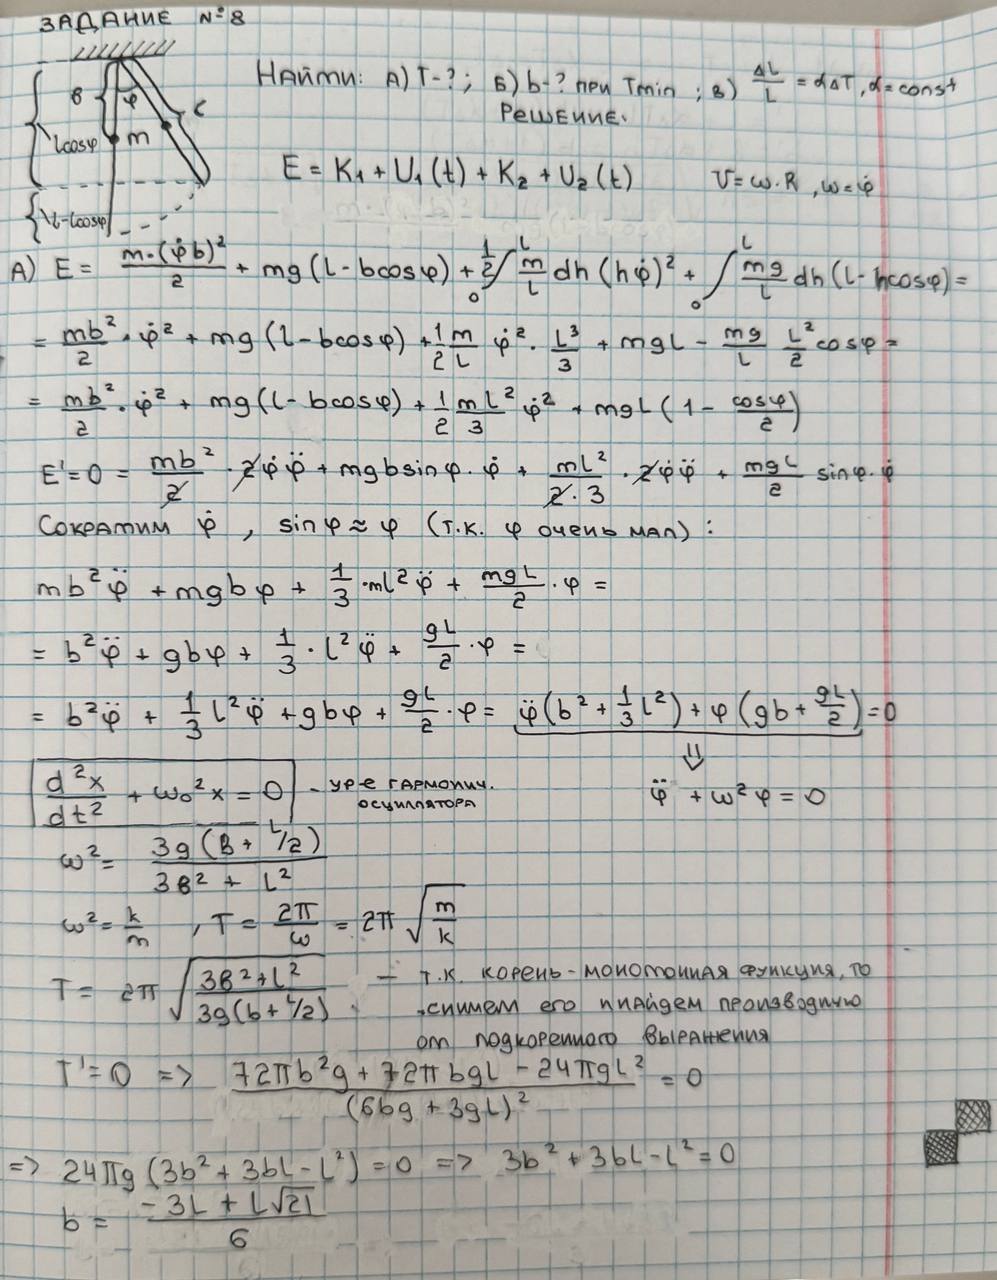 ЗАДАНИЕ №8
НАЙТИ: А) T-?; Б) b-? при Tmin; В) ΔL/L = αΔT, α=const
РЕШЕНИЕ.
в φ L
Lcosφ m
L-Lcosφ
E = K₁ + U₁(t) + K₂ + U₂(t) V=ω·R, ω=φ̇
А) E = m·(φ̇b)²/2 + mg(L-bcosφ) + 1/2 ∫₀ᴸ m/L dh(hφ̇)² + ∫₀ᴸ mg/L dh(L-hcosφ) =
= mb²/2 · φ̇² + mg(L-bcosφ) + 1/2 m/L φ̇² · L³/3 + mgL - mg/L L²/2 cosφ =
= mb²/2 · φ̇² + mg(L-bcosφ) + 1/2 mL²/3 φ̇² + mgL(1 - cosφ/2)
E'=0 = mb²/2 · 2φ̇φ̈ + mgbsinφ·φ̇ + mL²/2·3 · 2φ̇φ̈ + mgL/2 sinφ·φ̇
Сократим φ̇, sinφ≈φ (т.к. φ очень мал):
mb²φ̈ + mgbφ + 1/3 ·mL²φ̈ + mgL/2 ·φ =
= b²φ̈ + gbφ + 1/3 · L²φ̈ + gL/2 ·φ =
= b²φ̈ + 1/3 L²φ̈ + gbφ + gL/2 ·φ = φ̈(b² + 1/3 L²) + φ(gb + gL/2) = 0
⇓
d²x/dt² + ω₀²x = 0 - ур-е гармонич. осциллятора φ̈ + ω²φ = 0
ω² = 3g(в + L/2)/3в² + L²
ω² = k/m, T = 2π/ω = 2π√m/k
T = 2π√3в²+L²/3g(b+L/2) — т.к. корень-монотонная функция, то
снимем его и найдем производную
от подкоренного выражения
T'=0 => 72πb²g + 72πbgL - 24πgL²/(6bg + 3gL)² = 0
=> 24πg(3b² + 3bL - L²) = 0 => 3b² + 3bL - L² = 0
b = -3L + L√21/6